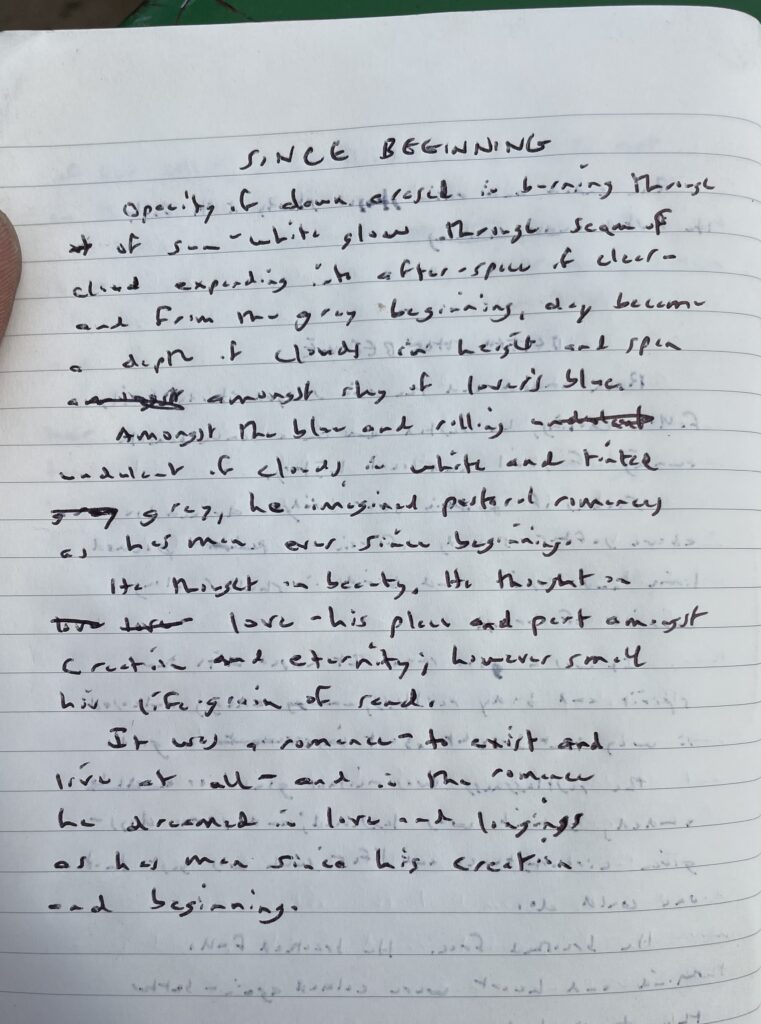 SINCE BEGINNING
Opacity of dawn erased in burning through
of sun-white glow through seam of
cloud expanding into after-space of clear-
and from the gray beginning, day became
a depth of clouds in height and span
amongst sky of lover's blue.
Amongst the blue and rolling
undulant of clouds in white and tinted
gray, he imagined pastoral romances
as has man ever since beginning.
He thought on beauty. He thought on
love - his place and part amongst
creation and eternity; however small
his life-grain of sand.
It was a romance - to exist and
live at all - and in the romance
he dreamed in love and longings
as has man since his creation
and beginning.